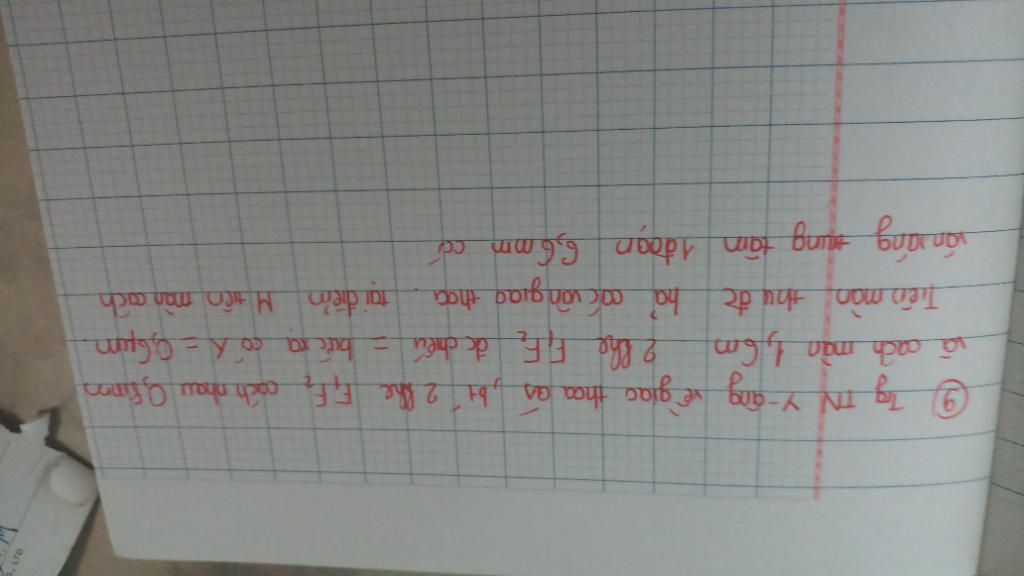 ⑨ Tg TN Y-âng về giao thoa as, bt 2 khe F₁F₂ cách nhau 0,8mm
và cách màn 1,6m. 2 khe F₁F₂ đc chiếu = bức xạ có λ = 0,6μm.
Trên màn thu đc hả các vân giao thoa. tại điểm M trên màn cách
vân sáng trung tâm 1 đoạn 6,6mm có
., LTD